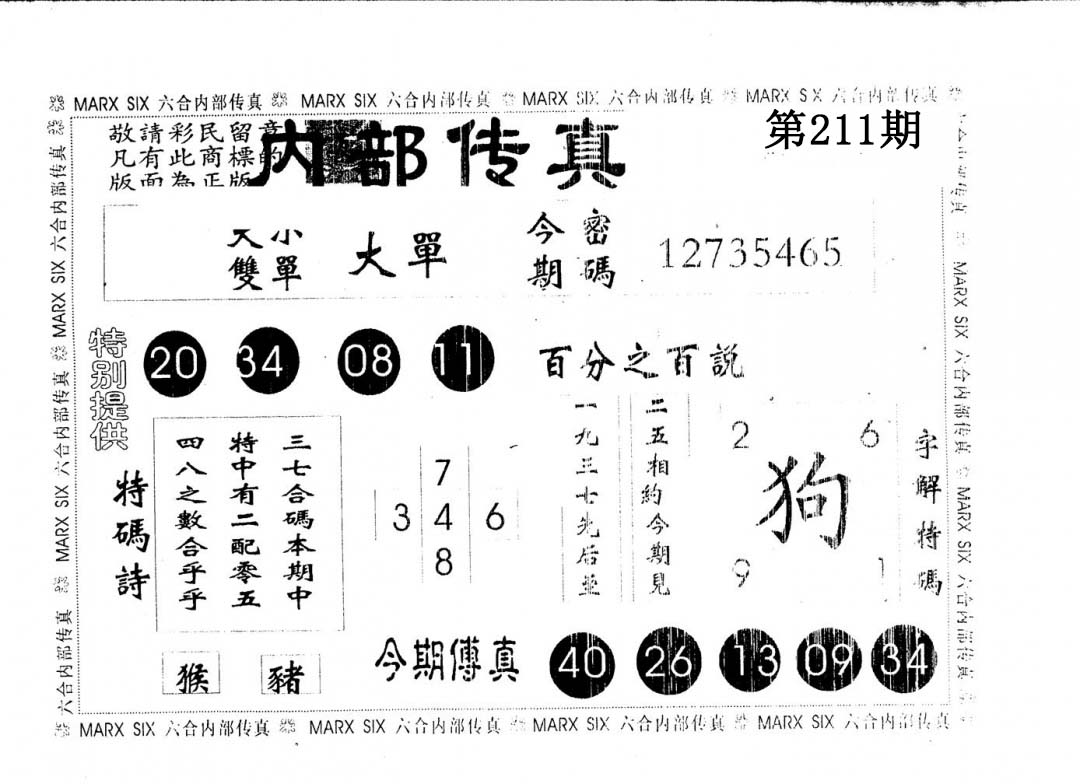 MARX SIX 六合内部传真 MARX SIX 六合内部传真 MARX SIX 六合内部传真 MARX SIX 六合内部传真
敬請彩民留意
凡有此商標的
版面為正版
内部传真
第211期
大小
雙單
大單
今期
密碼
12735465
特别提供
20 34 08 11
百分之百説
特碼詩
三七合碼本期中
特中有二配零五
四八之數合乎乎
7
3 4 6
8
二五相約今期見
一九三七先后並
2 6
狗
9 1
字解特碼
猴 豬
今期傳真
40 26 13 09 34
MARX SIX 六合内部传真 MARX SIX 六合内部传真 MARX SIX 六合内部传真
MARX SIX 六合内部传真 MARX SIX 六合内部传真
MARX SIX 六合内部传真 MARX SIX 六合内部传真 MARX SIX 六合内部传真 MARX SIX 六合内部传真